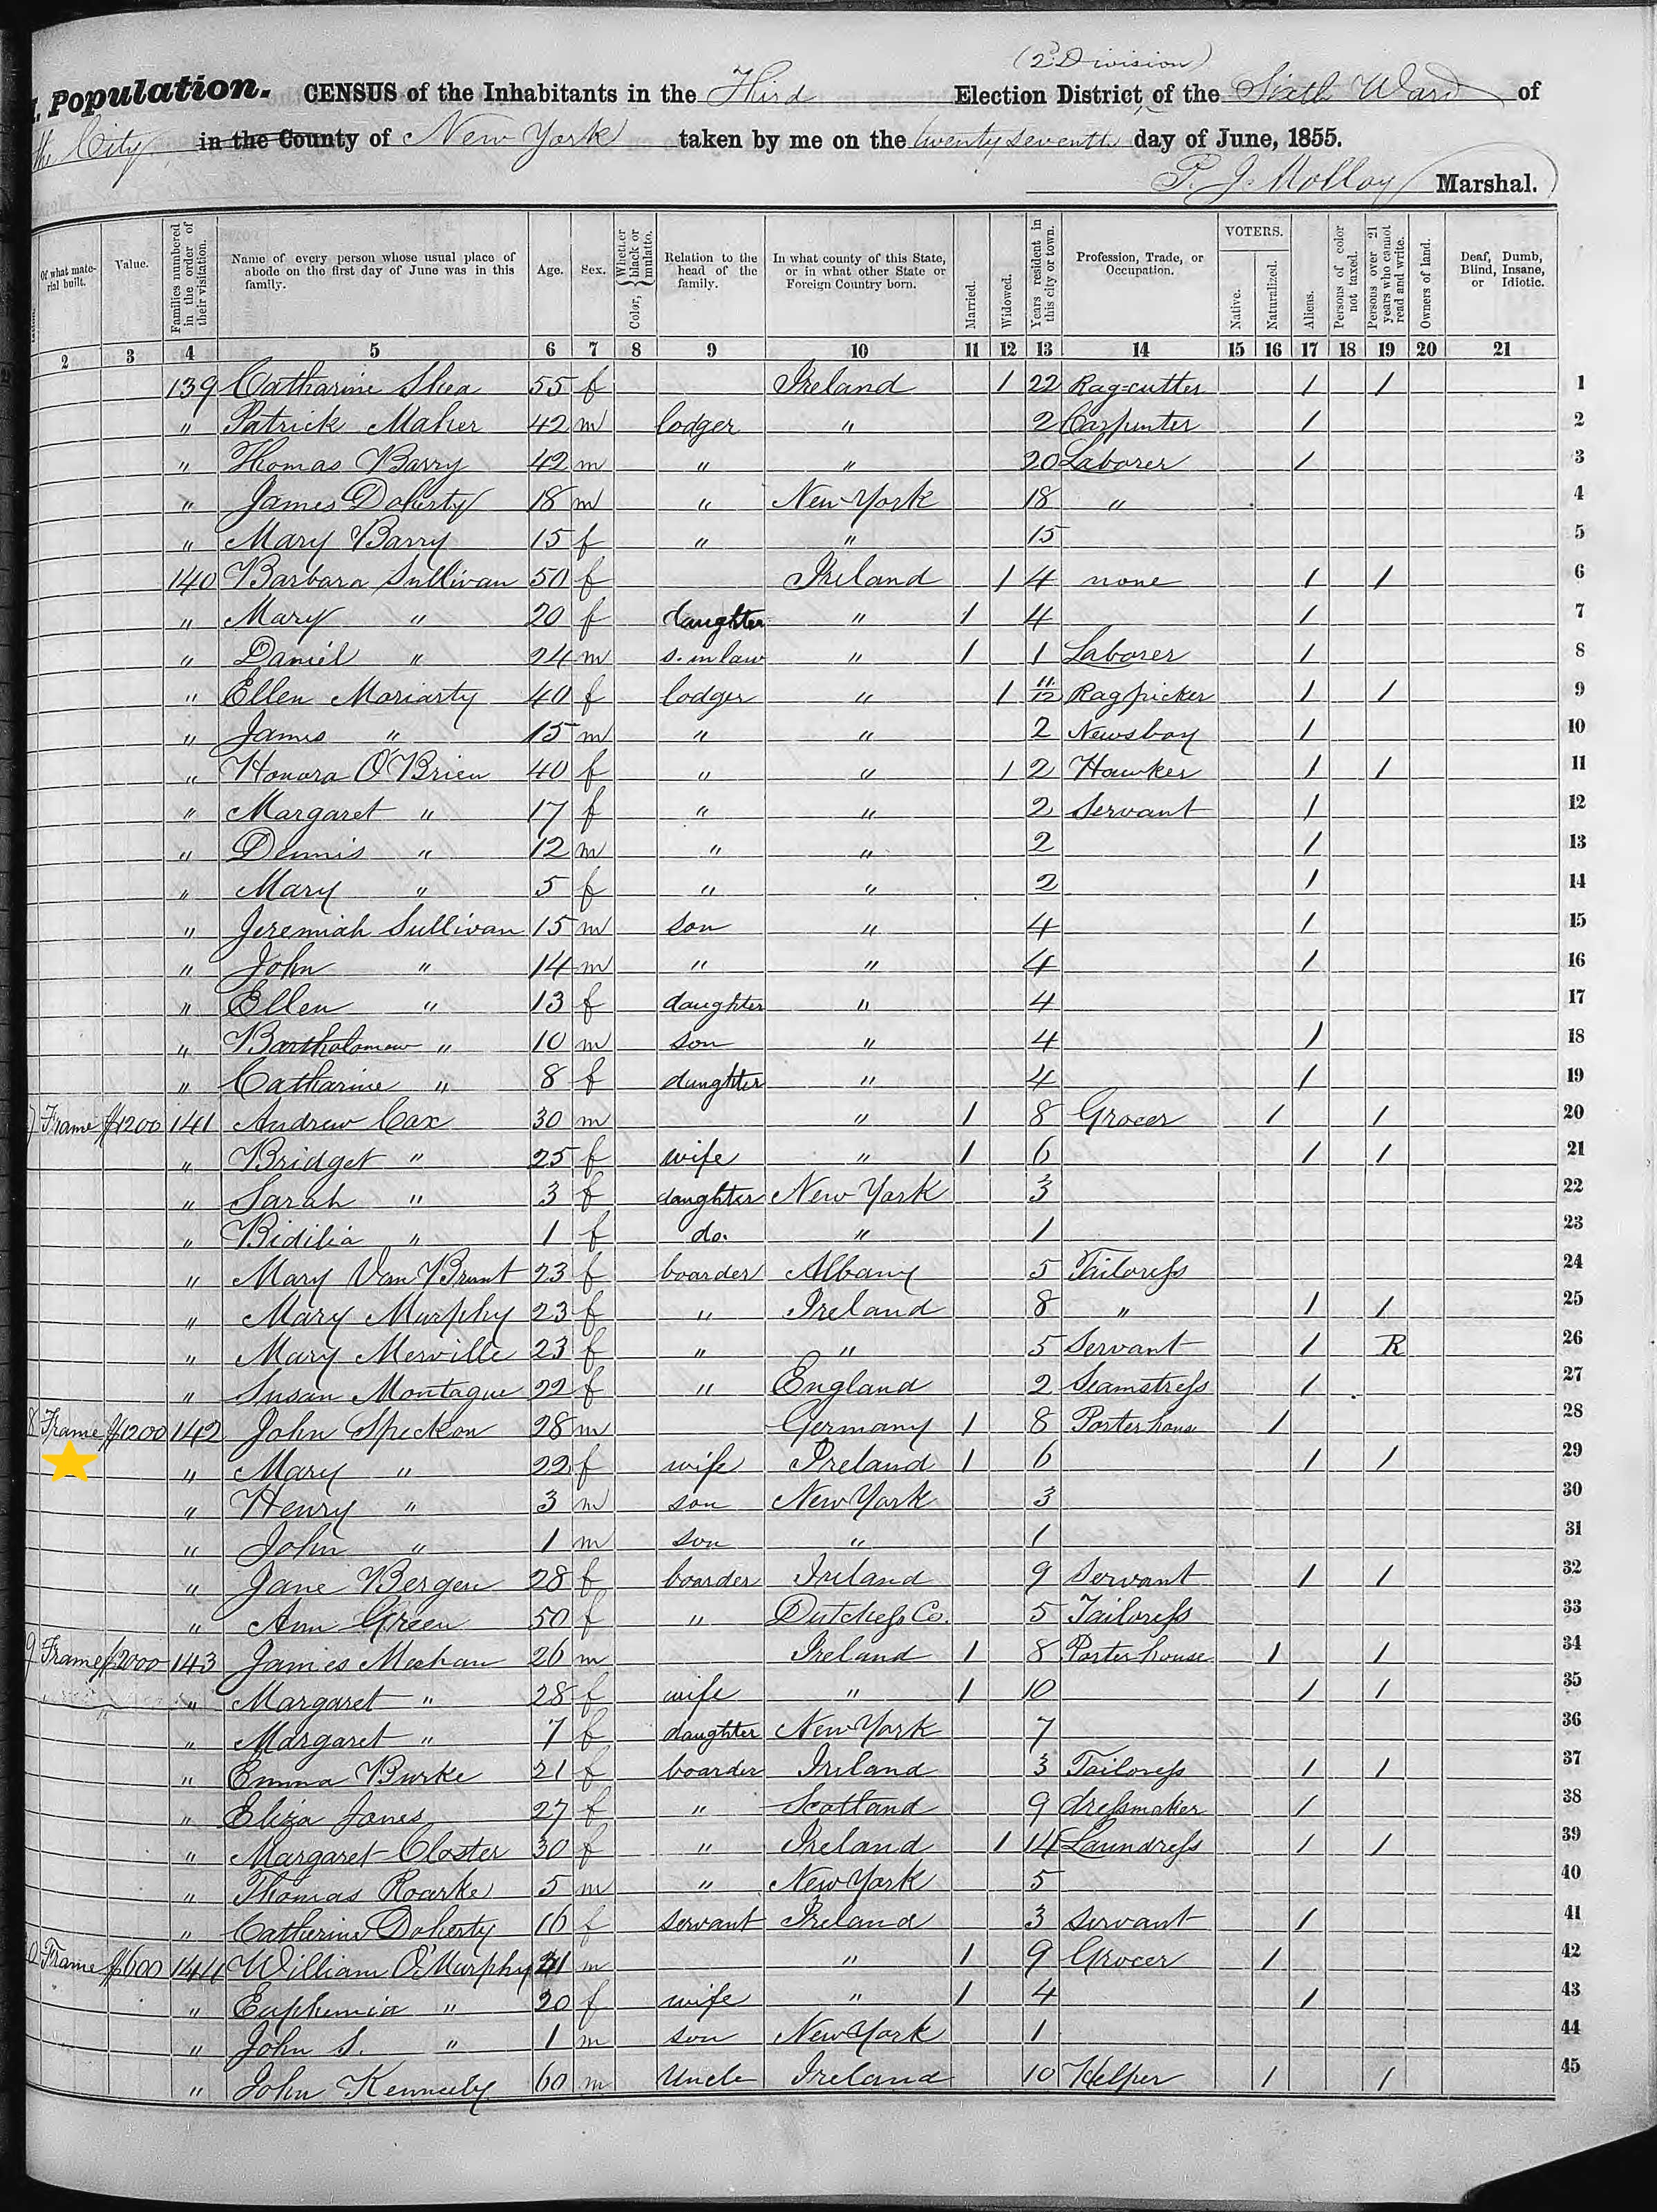 (2d Division)
1. Population. CENSUS of the Inhabitants in the Third Election District, of the Sixth Ward of
the City in the County of New York taken by me on the twenty seventh day of June, 1855.
P. J. Molloy Marshal.
Of what material built. Value. Families numbered in the order of their visitation. Name of every person whose usual place of abode on the first day of June was in this family. Age. Sex. Color, Whether black or mulatto. Relation to the head of the family. In what county of this State, or in what other State or Foreign Country born. Married. Widowed. Years resident in this city or town. Profession, Trade, or Occupation. VOTERS. Native. Naturalized. Aliens. Persons of color not taxed. Persons over 21 years who cannot read and write. Owners of land. Deaf, Dumb, Blind, Insane, or Idiotic.
2 3 4 5 6 7 8 9 10 11 12 13 14 15 16 17 18 19 20 21
139 Catharine Shea 55 f Ireland 1 22 Rag=cutter 1 1 1
" Patrick Maher 42 m lodger " 2 Carpenter 1 2
" Thomas Barry 42 m " " 20 Laborer 1 3
" James Doherty 18 m " New York 18 " 4
" Mary Barry 15 f " " 15 5
140 Barbara Sullivan 50 f Ireland 1 4 none 1 1 6
" Mary " 20 f daughter " 1 4 1 7
" Daniel " 24 m s. in law " 1 1 Laborer 1 8
" Ellen Moriarty 40 f lodger " 1 11/12 Ragpicker 1 1 9
" James " 15 m " " 2 Newsboy 1 10
" Honora O'Brien 40 f " " 1 2 Hawker 1 1 11
" Margaret " 17 f " " 2 Servant 1 12
" Dennis " 12 m " " 2 1 13
" Mary " 5 f " " 2 1 14
" Jeremiah Sullivan 15 m son " 4 1 15
" John " 14 m " " 4 1 16
" Ellen " 13 f daughter " 4 17
" Bartholomew " 10 m son " 4 1 18
" Catharine " 8 f daughter " 4 1 19
7 Frame $1200 141 Andrew Cax 30 m " 1 8 Grocer 1 1 20
" Bridget " 25 f wife " 1 6 1 1 21
" Sarah " 3 f daughter New York 3 22
" Bidilia " 1 f do. " 1 23
" Mary Van Brunt 23 f boarder Albany 5 Tailoress 24
" Mary Murphy 23 f " Ireland 8 " 1 1 25
" Mary Merville 23 f " " 5 Servant 1 R 26
" Susan Montague 22 f " England 2 Seamstress 1 27
8 Frame $1200 142 John Speckon 28 m Germany 1 8 Porterhouse 1 28
" Mary " 22 f wife Ireland 1 6 1 1 29
" Henry " 3 m son New York 3 30
" John " 1 m son " 1 31
" Jane Bergen 28 f boarder Ireland 9 Servant 1 1 32
" Ann Green 50 f " Dutchess Co. 5 Tailoress 33
9 Frame $2000 143 James Meehan 26 m Ireland 1 8 Porterhouse 1 1 34
" Margaret " 28 f wife " 1 10 1 1 35
" Margaret " 7 f daughter New York 7 36
" Emma Burke 21 f boarder Ireland 3 Tailoress 1 1 37
" Eliza Jones 27 f " Scotland 9 dressmaker 1 38
" Margaret Closter 30 f " Ireland 1 14 Laundress 1 1 39
" Thomas Roarke 5 m " New York 5 40
" Catherine Doherty 16 f servant Ireland 3 servant 1 41
Frame $600 144 William O'Murphy m " 1 9 Grocer 1 42
" Euphemia " 20 f wife " 1 4 1 43
" John S. " 1 m son New York 1 44
" John Kenneely 60 m Uncle Ireland 10 Helper 1 1 45